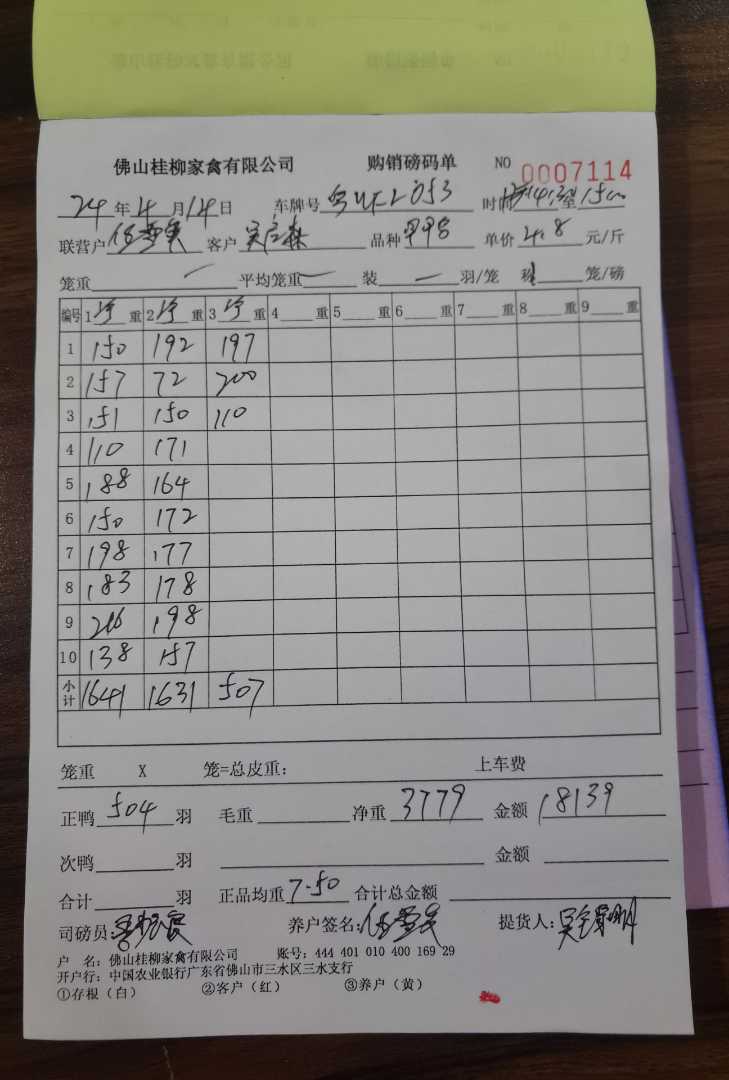 佛山桂柳家禽有限公司 购销磅码单 NO 0007114
24年4月14日 车牌号 粤 053 时间
联营户 客户 吴 森 品种 单价 4.8 元/斤
笼重 — 平均笼重 — 装 — 羽/笼 笼/磅
编号 1净重 2净重 3净重 4 重 5 重 6 重 7 重 8 重 9 重
1 150 192 197
2 157 72 200
3 151 150 110
4 110 171
5 188 164
6 150 172
7 198 177
8 183 178
9 216 198
10 138 157
小计 1641 1631 507
笼重 X 笼=总皮重: 上车费
正鸭 504 羽 毛重 净重 3779 金额 18139
次鸭 羽 金额
合计 羽 正品均重 7.50 合计总金额
司磅员: 养户签名: 提货人: 吴
户 名: 佛山桂柳家禽有限公司 账号: 444 401 010 400 169 29
开户行: 中国农业银行广东省佛山市三水区三水支行
①存根(白) ②客户(红) ③养户(黄)